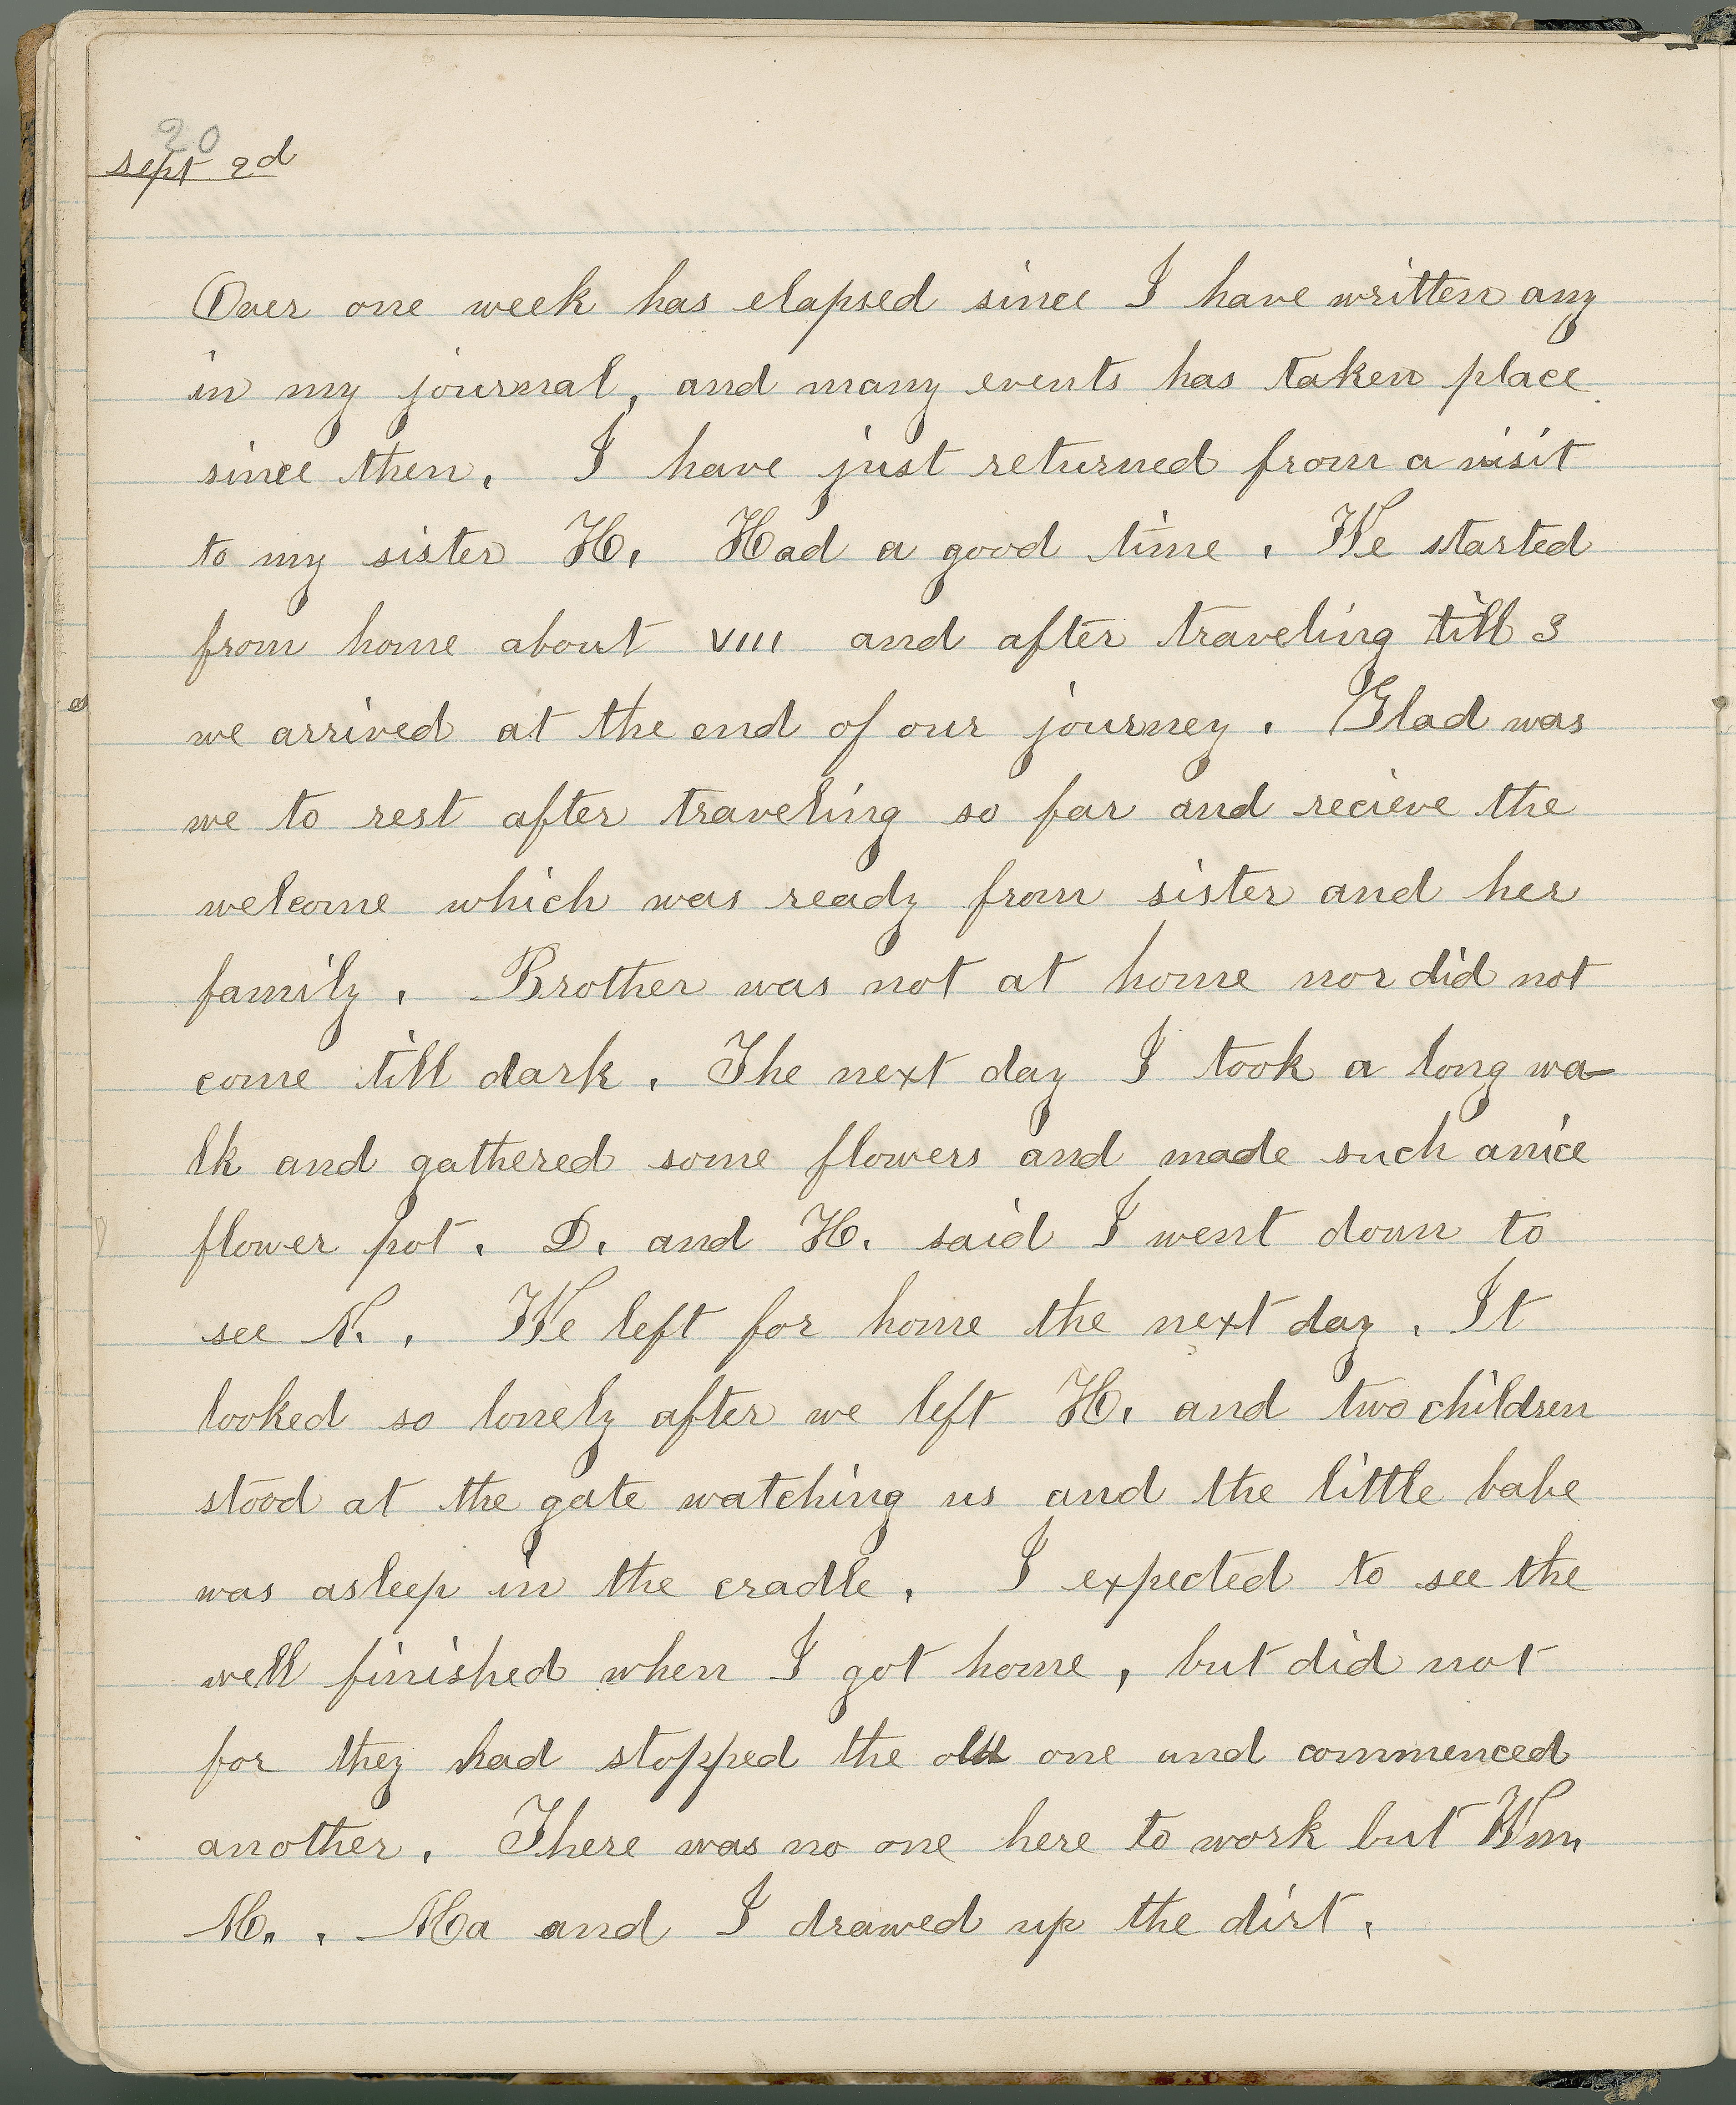 20
sept 2d
Over one week has elapsed since I have written any
in my journal, and many events has taken place
since then. I have just returned from a visit
to my sister H. Had a good time. We started
from home about VIII and after traveling till 3
we arrived at the end of our journey. Glad was
we to rest after traveling so far and recieve the
welcome which was ready from sister and her
family. Brother was not at home nor did not
come till dark. The next day I took a long wa-
lk and gathered some flowers and made such a nice
flower pot. D. and H. said I went down to
see N.. We left for home the next day. It
looked so lonely after we left H. and two children
stood at the gate watching us and the little babe
was asleep in the cradle. I expected to see the
well finished when I got home, but did not
for they had stopped the old one and commenced
another. There was no one here to work but Wm.
M.. Ma and I drawed up the dirt.